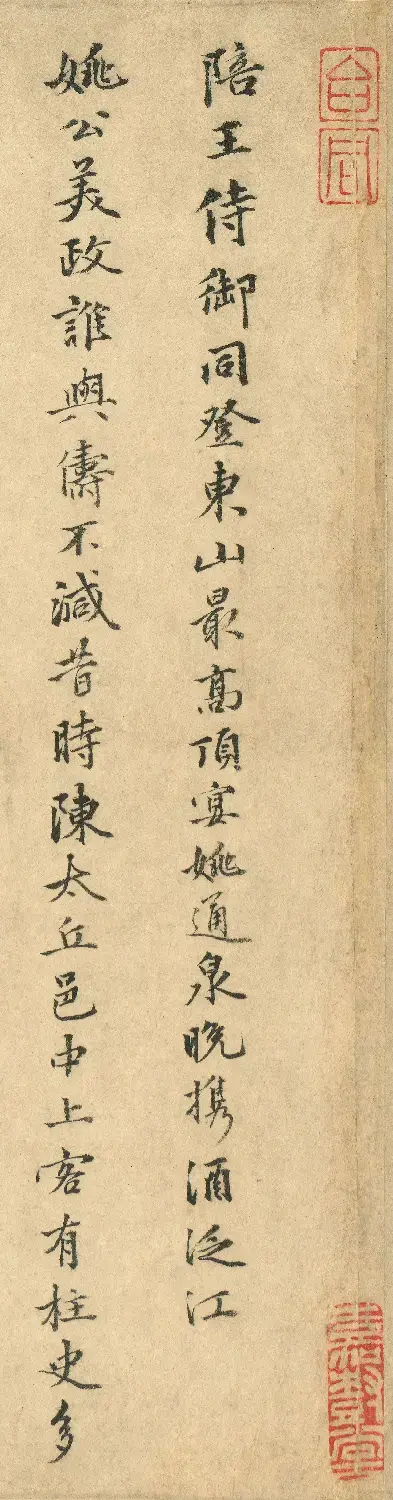 陪王侍御同登東山最高頂宴姚通泉晩攜酒泛江
姚公美政誰與儔不減昔時陳太丘邑中上客有柱史多